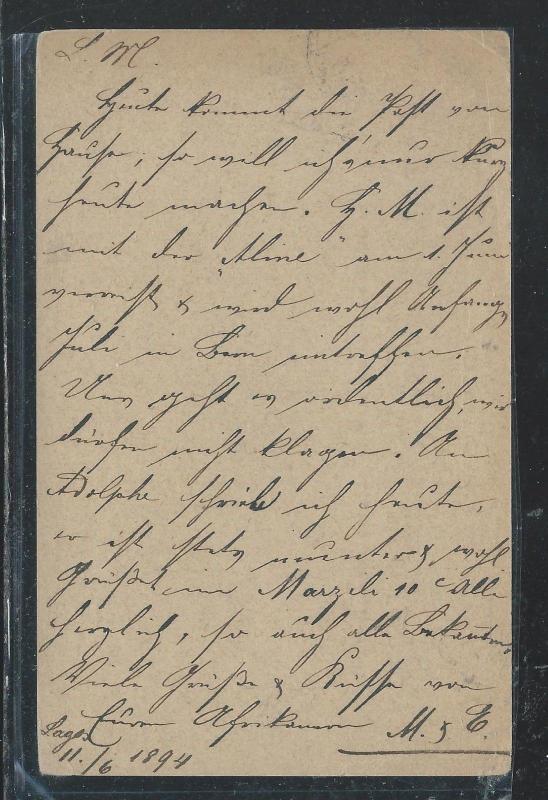 L. M.
Heute kommt die Post von
Hause, so will ich's nur kurz
heute machen. H. M. ist
mit der "Aline" am 1. Juni
verreist & wird wohl Anfangs
Juli in Bern eintreffen.
Uns geht es ordentlich, wir
dürfen nicht klagen. An
Adolphe schrieb ich heute,
er ist stets munter & wohl
Grüßet im Marzili 10 Alle
herzlich, so auch alle Bekannten,
Viele Grüße & Küsse von
Euren Afrikanern M. & E.
Lagos
11./6 1894